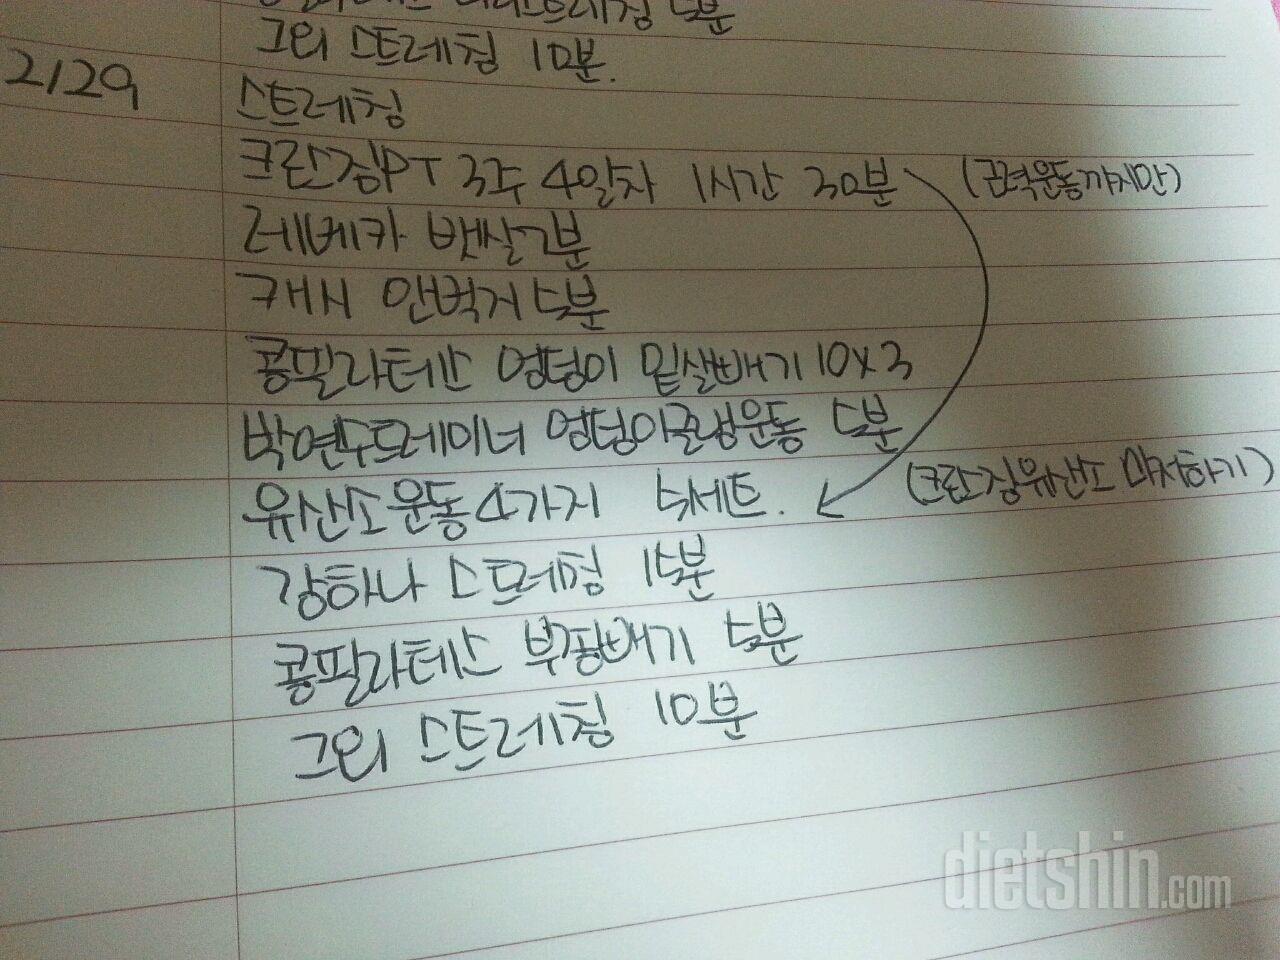 스트레칭 5분
그외 스트레칭 10분.
2/29 스트레칭
크란징PT 3주 4일차 1시간 30분 (근력운동까지만)
레베카 뱃살 7분
캐시 안벅지 5분
콩필라테스 엉덩이 밑살빼기 10x3
박연수트레이너 엉덩이굴곡운동 5분
유산소운동 4가지 5세트. (크란징유산소 마저하기)
강하나 스트레칭 15분
콩필라테스 부종빼기 5분
그외 스트레칭 10분
dietshin.com